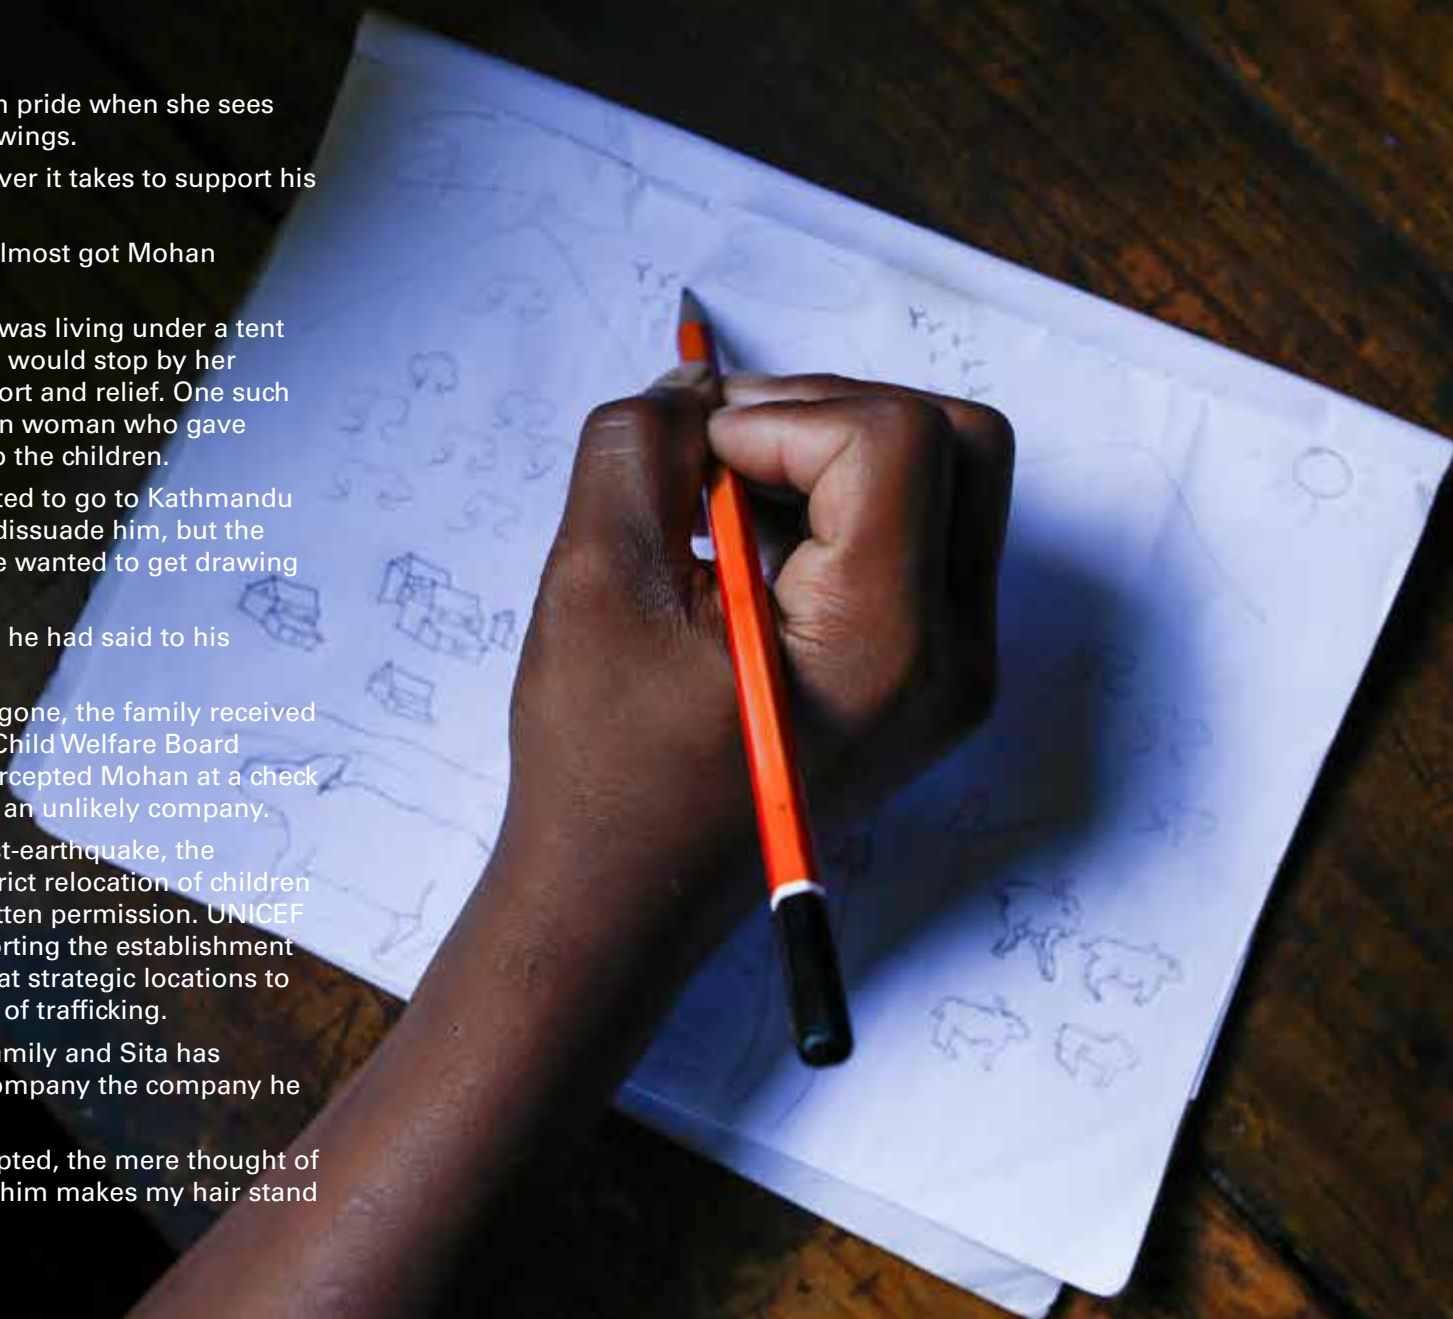 n pride when she sees
wings.
ver it takes to support his
lmost got Mohan
was living under a tent
would stop by her
ort and relief. One such
n woman who gave
o the children.
ted to go to Kathmandu
dissuade him, but the
e wanted to get drawing
he had said to his
gone, the family received
Child Welfare Board
rcepted Mohan at a check
an unlikely company.
st-earthquake, the
rict relocation of children
tten permission. UNICEF
orting the establishment
at strategic locations to
of trafficking.
amily and Sita has
ompany the company he
pted, the mere thought of
him makes my hair stand